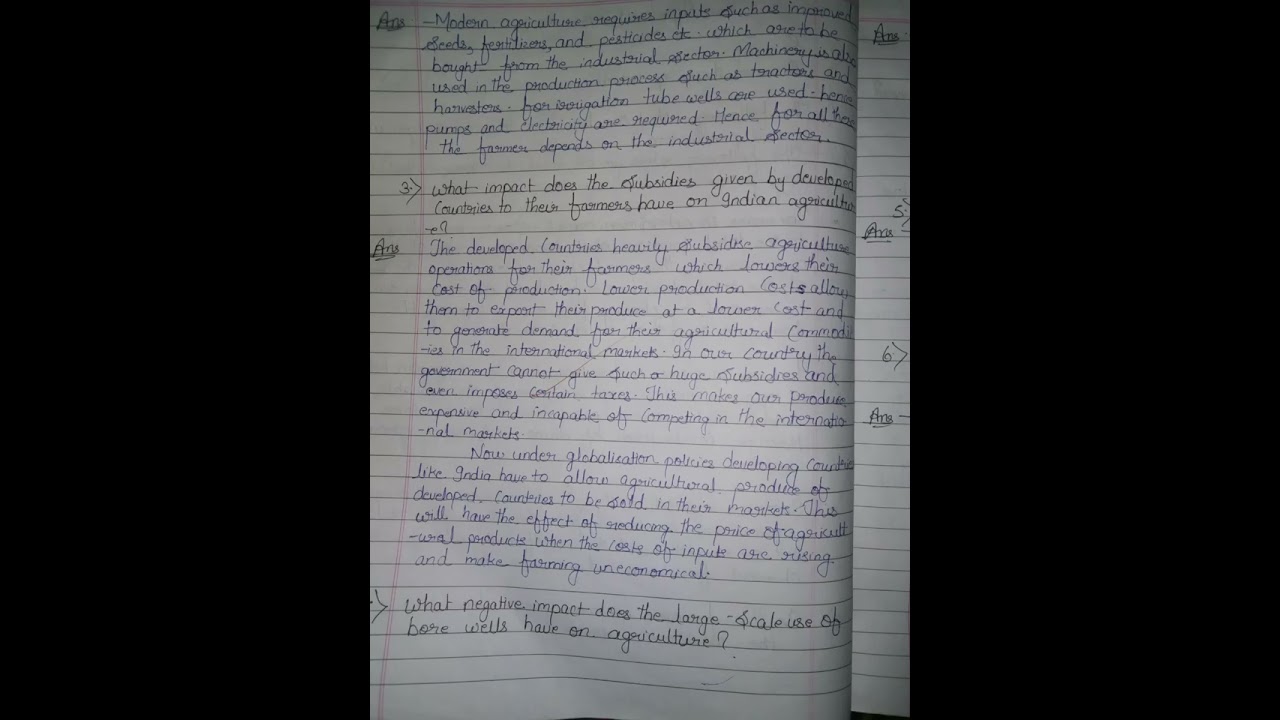 Ans - Modern agriculture requires inputs such as improved
seeds, fertilizers, and pesticides etc. which are to be
bought from the industrial sector. Machinery is also
used in the production process such as tractors and
harvesters. for irrigation tube wells are used - hence
pumps and electricity are required. Hence for all these
the farmer depends on the industrial sector.
3.) What impact does the subsidies given by developed
Countries to their farmers have on Indian agricultur
-e?
Ans The developed Countries heavily subsidise agriculture
operations for their farmers which lowers their
cost of production. Lower production Costs allow
them to export their produce at a lower cost and
to generate demand for their agricultural Commodit
-ies in the international markets. In our country the
government cannot give such a huge subsidies and
even imposes certain taxes. This makes our produce
expensive and incapable of competing in the internatio
-nal markets.
Now under globalisation policies developing Countries
like India have to allow agricultural produce of
developed Countries to be sold in their markets. This
will have the effect of reducing the price of agricult
-ural products when the costs of inputs are rising
and make farming uneconomical.
.) What negative impact does the large - scale use of
bore wells have on agriculture?
Ans
5.)
Ans -
6.)
Ans -